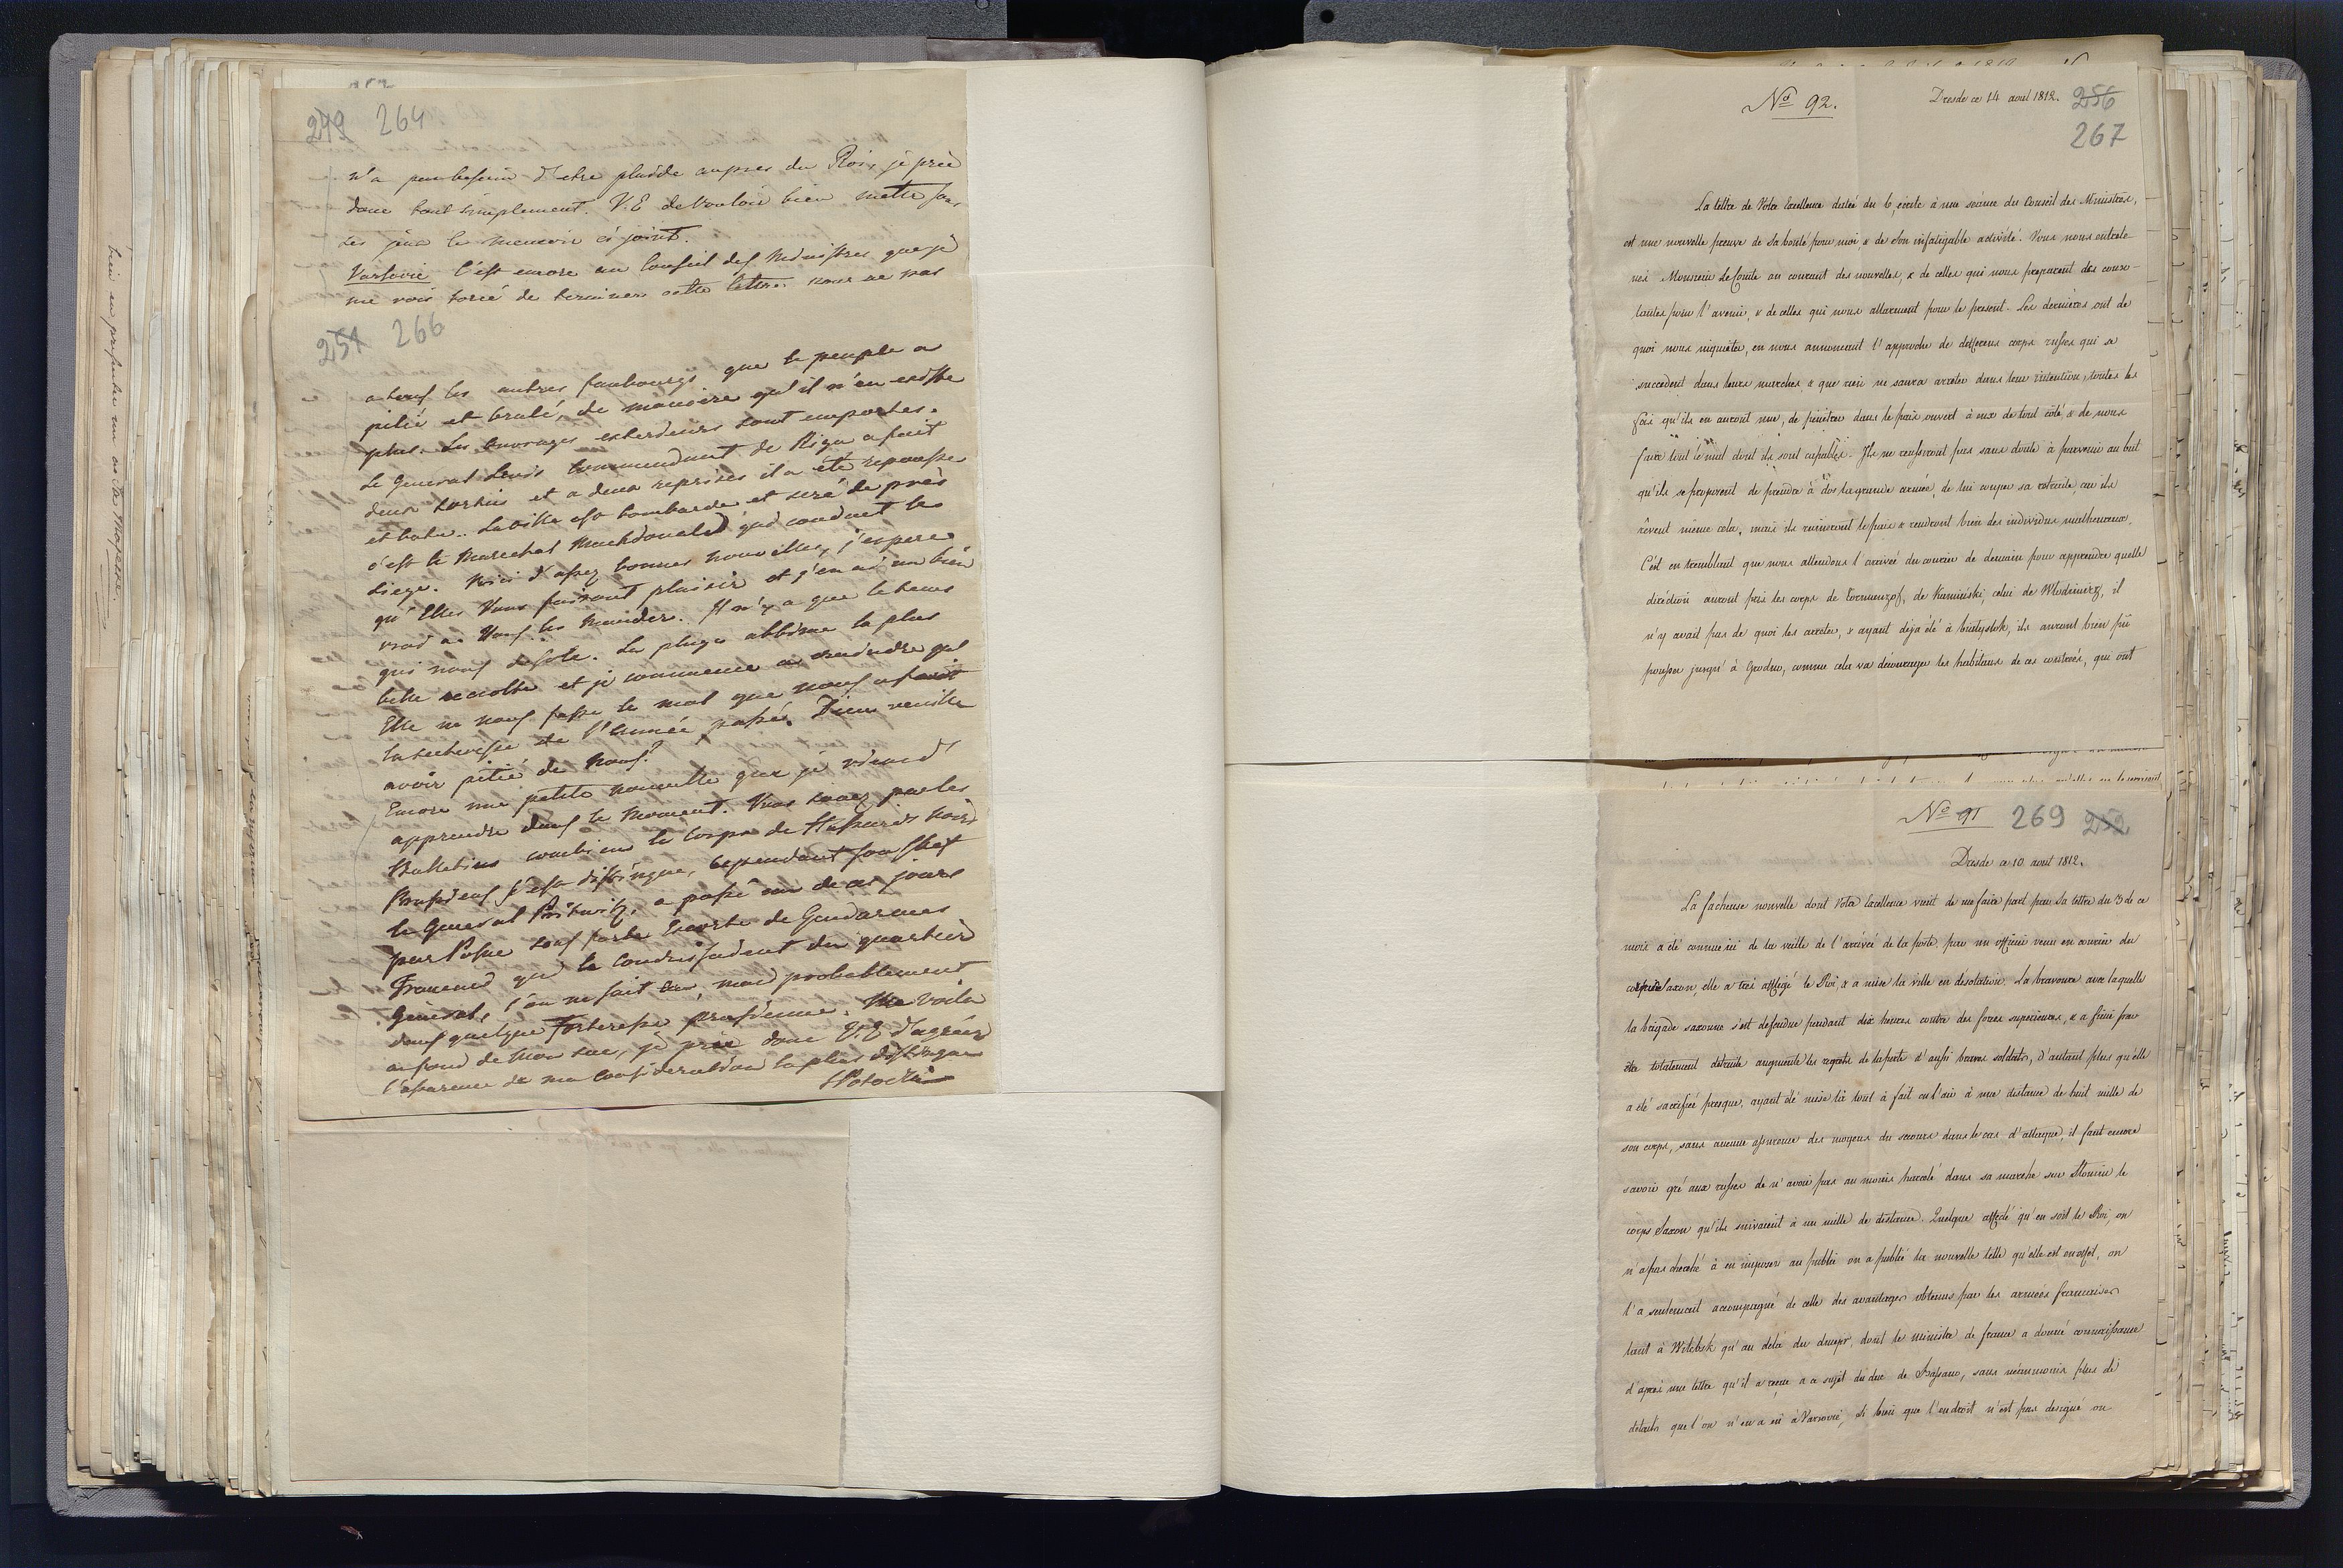 249 264
n'a pas besoin d'etre plaidé aupres du Roi, je prie
donc tout simplement. V.E de vouloir bien mettre sous
ses yeux le memoire ci joint.
Varsovie C'est encore au Conseil des Ministres que je
me vois forcé de terminer cette lettre pour ne pas
251 266
a tous les autres faubourgs que le peuple a
pilié et brulé, de maniere qu'il n'en existe
plus. Les ouvrages exterieurs sont emportes.
Le General Commendant de Riga a fait
deux sorties et a deux reprises il a été repousse
et batu. La ville est bombardé et seré de près
c'est le Marechal Mackdonald qui conduit le
Siege. Voici d'assez bonnes nouvelles, j'espere
qu'Elles Vous fairont plaisir et j'en ai un bien
vrai a Vous les mander. Il n'y a que le tems
qui nous desole. La pluye abbime la plus
belle recolte et je commence a craindre qu'
Elle ne nous fasse le mal que nous a fait
la secheresse de l'année passée. Dieu veuille
avoir pitié de Nous!
Encore une petite nouvelle que je viens d'
apprendre dans le moment. Vous savez par les
Bulletins combien le Corps de Hussards noirs
Prussiens s'est distingué, cependant son Chef
le General a passé un de ces jours
par Posne sous forte Escorte de Gendarmes
Francais qui le conduisaient du quartier
General, l'on ne sait ou, mais probablement
dans quelque Forteresse prussienne. Me voila
au fond de mon sac, je prie donc V.E d'agréer
l'assurance de ma Consideration la plus distinguee
SPotocki
bien en presenter un à Sa Majesté.
Nº 92.
Dresde ce 14 aout 1812.
256
267
La lettre de Votre Excellence datée du 6, écrite à une séance du Conseil des Ministres,
est une nouvelle preuve de Sa bonté pour moi, & de Son infatigable activité. Vous nous entrete-
nez Monsieur Le Comte au courant des nouvelles, & de celles qui nous preparent des conso-
lantes pour l'avenir, & de celles qui nous allarment pour le present. Les dernieres ont de
quoi nous inquiéter, en nous annoncant l'approche de differens corps russes qui se
succedent dans leurs marches & que rien ne saura arreter dans leur intention, toutes les
fois qu'ils en auront une, de pénétrer dans le païs ouvert à eux de tout côté & de nous
faire tout le mal dont ils sont capables. Ils ne reussiront pas sans doute à parvenir au but
qu'ils se proposent de prendre à dos la grande armée, de lui couper sa retraite, car ils
rêvent même cela, mais ils ruineront le païs & rendront bien des individus malheureux.
C'est en tremblant que nous attendons l'arrivée du courier de demain pour apprendre quelle
direction auront pris les corps de Tormanzof, de Kaminski, celui de Wlodimierz, il
n'y avait pas de quoi les arreter, & ayant déja été à bialystok, ils auront bien pû
pousser jusqu'à Grodno, comme cela va décourager les habitans de ces contrées, qui ont
Nº 91 269 252
Dresde ce 10 aout 1812.
La facheuse nouvelle dont Votre Excellence vient de me faire part par Sa lettre du 3 de ce
mois a été connue ici de la veille de l'arrivée de la poste, par un officier venu en courier du
corps de Saxon, elle a tres affligé le Roi, & a mise la ville en désolation. La bravoure avec laquelle
la brigade saxonne s'est defendue pendant dix heures contre des forces superieures, & a finie par
être totalement détruite augmente les regrets de la perte d'aussi braves soldats, d'autant plus qu'elle
a été sacrifiée presque, ayant été mise là tout à fait en l'air à une distance de huit mille de
son corps, sans aucune assurance des moyens de secours dans le cas d'attaque, il faut encore
savoir gré aux russes de n'avoir pas au moins harcelé dans sa marche sur Slonim le
corps Saxon qu'ils suivaient à un mille de distance. Quelque affecté qu'en soit le Roi, on
n'a pas cherché à en imposer au public on a publié la nouvelle telle qu'elle est en effet, on
l'a seulement accompagné de celle des avantages obtenus par les armées francaises
tant à Witebsk qu'au delà du dnieper, dont le ministre de france a donné connaissance
d'après une lettre qu'il a reçue a ce sujet du duc de Bassano, sans néanmoins plus de
détails que l'on n'en a eû à Varsovie, si bien que l'endroit n'est pas designé ou